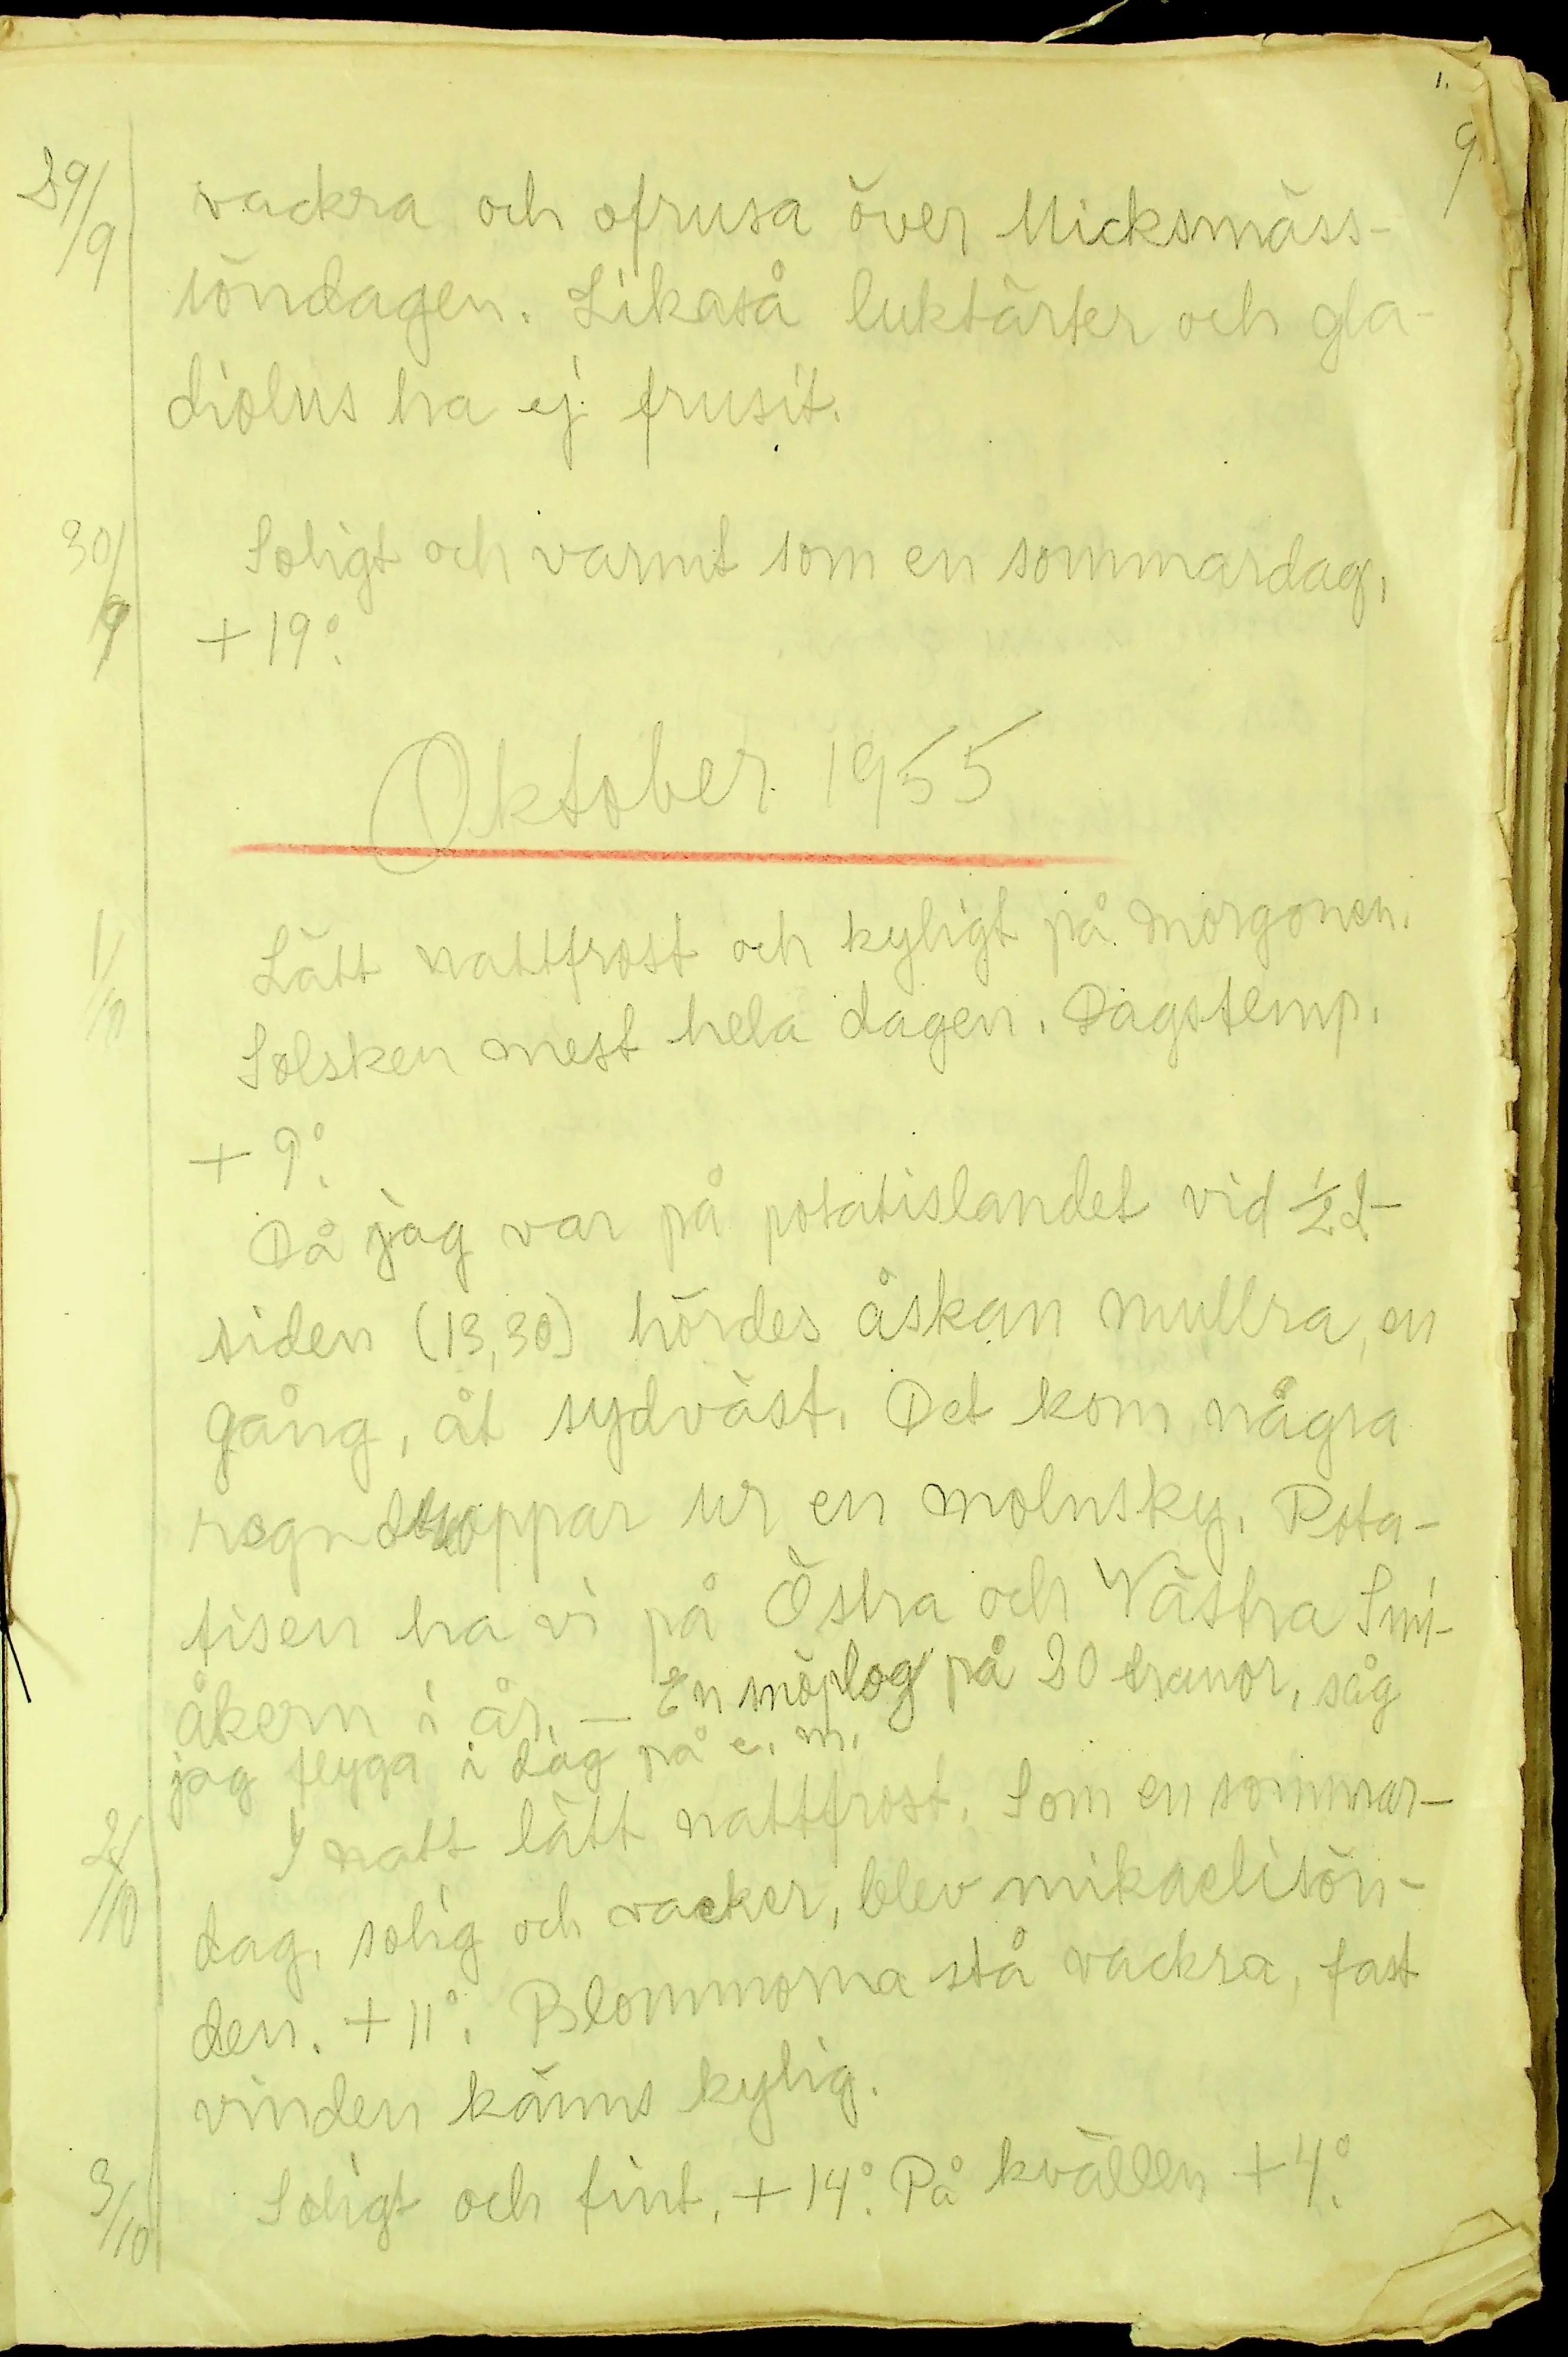 9
29/9 vackra och ofrusa över Micksmäss-
söndagen. Likaså luktärter och gla-
diolus ha ej frusit.
30/9 Soligt och varmt som en sommardag,
+19°.
Oktober 1955
1/10 Lätt nattfrost och kyligt på morgonen.
Solsken mest hela dagen. Dagstemp.
+9°.
Då jag var på potatislandet vid ½2-
tiden (13,30) hördes åskan mullra, en
gång, åt sydväst. Det kom några
regndroppar ur en molnsky. Pota-
tisen ha vi på Östra och Västra
åkern i år. — En på 20 tranor, såg
jag flyga i dag på e. m.
2/10 I natt lätt nattfrost. Som en sommar-
dag, solig och vacker, blev mikaelisön-
den. +11°. Blommorna stå vackra, fast
vinden känns kylig.
3/10 Soligt och fint, +14°. På kvällen +4°.